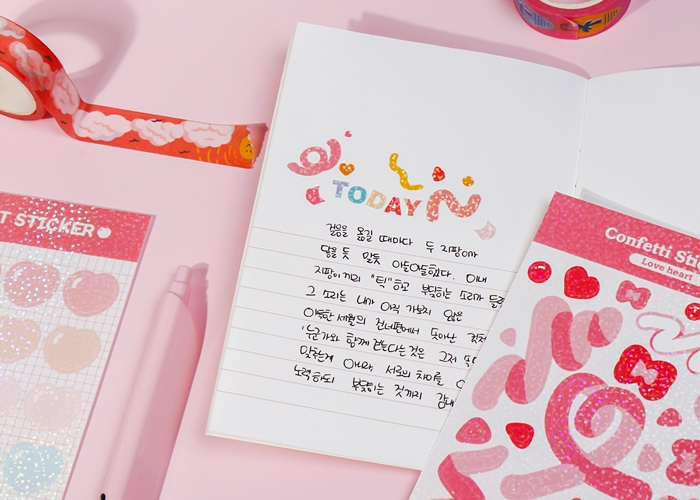 T STICKER
TODAY
걸음을 옮길 때마다 두 지팡이가
닿을 듯 말듯 아슬아슬했다. 이내
지팡이끼리 "턱"하고 부딪히는 소리가 들
그 소리는 내가 아직 가보지 않은
아득한 세월의 건너편에서 돋아난
'누군가와 함께 걷는다는 것은 그저
맞추는게 아니라 서로의 차이를
노력하되 부딪히는 것까지 감내
Confetti Sti
Love heart